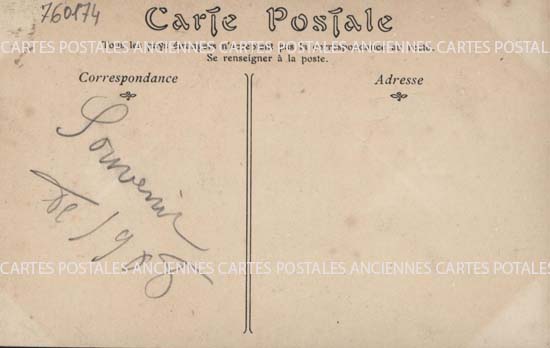 760174
Carte Postale
Tous les pays étrangers n'acceptent pas la correspondance au recto.
Se renseigner à la poste.
Correspondance
Adresse
Souvenir
de 19
CARTES POSTALES ANCIENNES CARTES POSTALES ANCIENNES CARTES POSTALES
CARTES POSTALES ANCIENNES CARTES POSTALES ANCIENNES CARTES POTALES